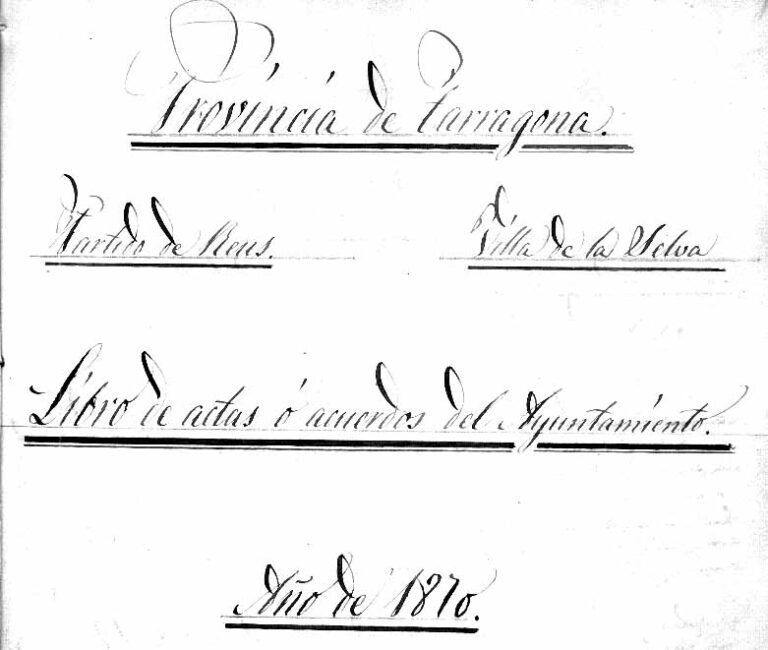 Provincia de Tarragona.
Partido de Reus. Villa de la Selva
Libro de actas ó acuerdos del Ayuntamiento.
Año de 1870.